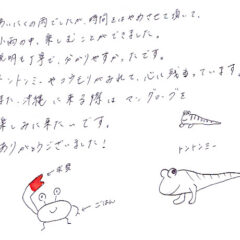 あいにくの雨でしたが、時間をはやめさせて頂いて、
小雨の中、楽しむことができました。
説明も丁寧で、分かりやすかったです。
トントンミーやコウモリが見れて、心に残っています。
また、沖縄に来る際は マングローブを
楽しみに来たいです。
ありがとうございました!
トントンミー
ごはん